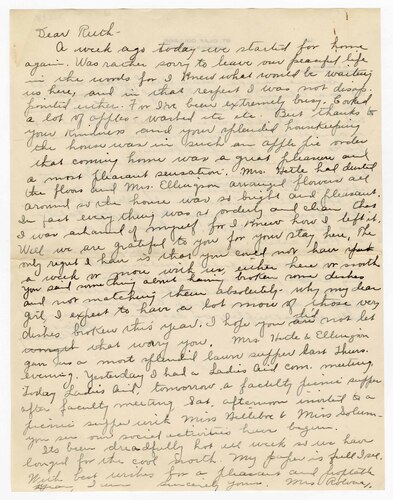 Dear Ruth -
A week ago today we started for home
again. Was rather sorry to leave our peaceful life
in the woods for I knew what would be waiting
us here, and in that respect I was not disap-
pointed either. For I've been extremely busy. Cooked
a lot of apples - washed etc etc. But thanks to
your kindness and your splendid housekeeping
the house was in such an apple pie order
that coming home was a great pleasure and
a most pleasant sensation. Mrs. Hitle had dusted
the floors and Mrs. Ellingson arranged flowers all
around so the house was so bright and pleasant.
In fact every thing was so orderly and clean that
I was ashamed of myself for I knew how I left it.
Well we are grateful to you for your stay here. The
only regret I have is that you could not have
a week or more with us, either here or north
You said something about having broken some dishes
and not matching them absolutely - why my dear
girl, I expect to have a lot more of those very
dishes broken this year. I hope you did not let
that worry you. Mrs. Hitle & Ellingson
gave us a most splendid lawn supper last Thurs.
evening. Yesterday I had a Ladies Aid com. meeting.
Today Ladies Aid, tomorrow a faculty picnic supper
after faculty meeting. Sat. afternoon invited to a
picnic supper with Miss Hilleboe & Miss Solum -
you see our society activities have begun.
Its been dreadfully hot all week so we have
longed for the cool North. My paper is full I see.
With best wishes for a pleasant and
I am sincerely yours. Mrs